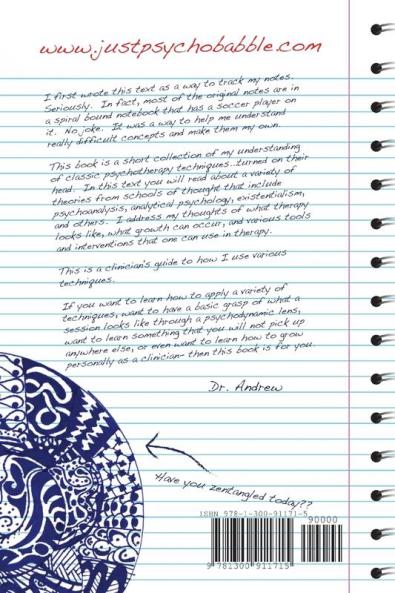 www.justpsychobabble.com
I first wrote this text as a way to track my notes.
Seriously. In fact, most of the original notes are in
a spiral bound notebook that has a soccer player on
it. No joke. It was a way to help me understand
really difficult concepts and make them my own.
This book is a short collection of my understanding
of classic psychotherapy techniques...turned on their
head. In this text you will read about a variety of
theories from schools of thought that include
psychoanalysis, analytical psychology, existentialism,
and others. I address my thoughts of what therapy
looks like, what growth can occur, and various tools
and interventions that one can use in therapy.
This is a clinician's guide to how I use various
techniques.
If you want to learn how to apply a variety of
techniques, want to have a basic grasp of what a
session looks like through a psychodynamic lens,
want to learn something that you will not pick up
anywhere else, or even want to learn how to grow
personally as a clinician- then this book is for you.
Dr. Andrew
Have you zentangled today??
ISBN 978-1-300-91171-5
90000
9 781300 911715